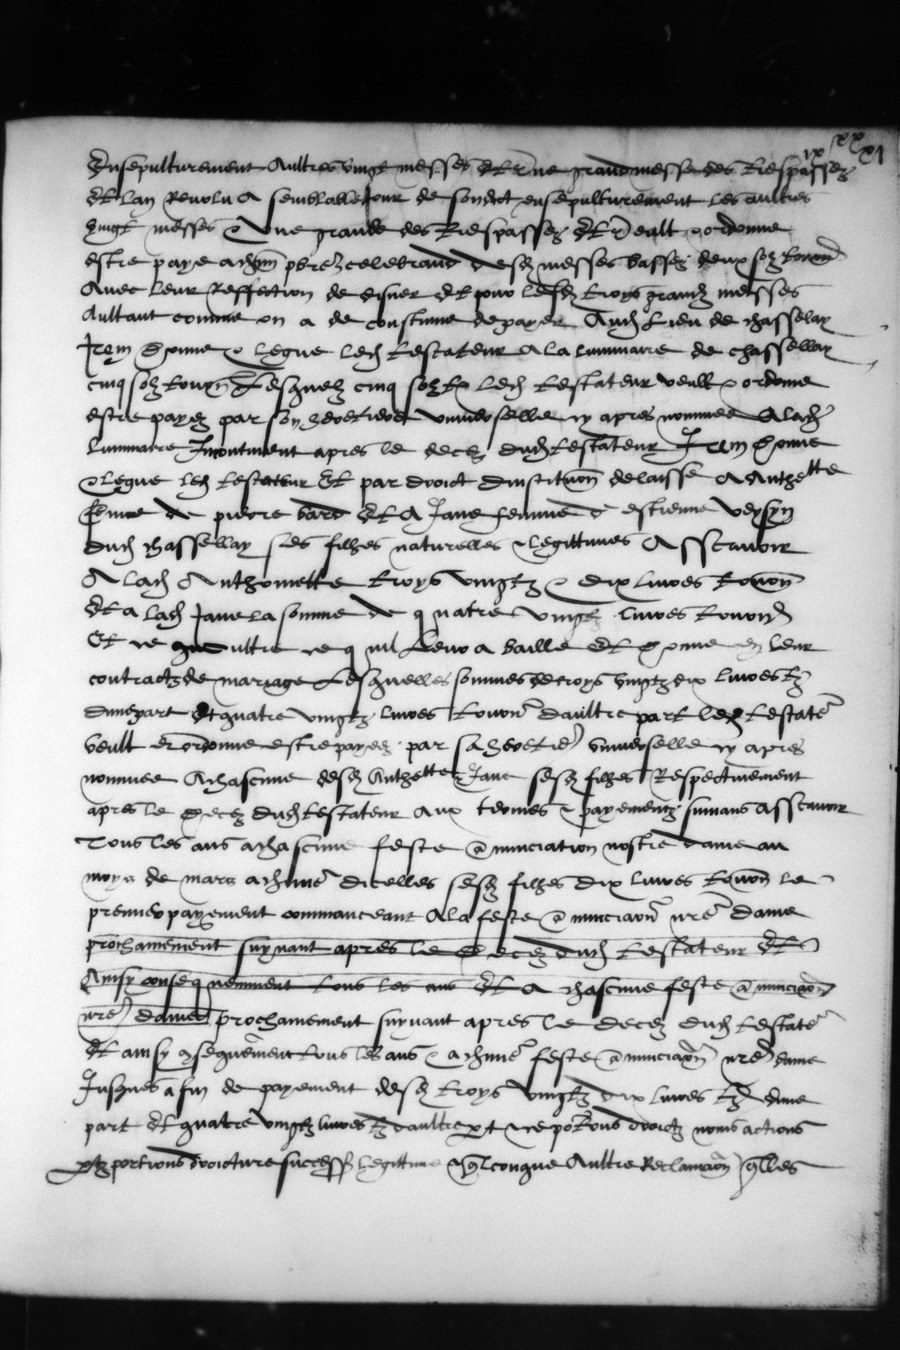 Ensepulturement Aultres vingt messes Et une grand messe des trespassez
Et lan Revolu A semblable jour de sondict ensepulturement les aultres
vingt messes & une grande des trespassez Et veult & ordonne
estre paye a chun pbre celebrand desd messes basses deux solz
Avec leur Reffection de disner Et pour lesd troys grandz messes
Aultant comme on a de coustume de payer Aud lieu de chassellay
Item donne & legue led testateur A la luminaire de chassellay
cinq solz tourn Lesquelz cinq solz tz led testateur veult & ordonne
estre payez par son heretiere universelle cy apres nommee A lad
luminaire Incontinent apres le decez dud testateur Item donne
& legue led testateur Et par droict dinstitution delaisse A Anthette
femme de pierre bard Et A Jane femme d estienne
dud chassellay ses filhes naturelles & legittimes Asscavoir
A lad Anthoinette troys vingtz & dix livres
Et a lad Jane la somme de quatre vingtz livres
Et ce oultre ce quil leur a baille et donne en leur
contractz de mariage Lesquelles sommes de troys vingtz dix livres tz
dune part Et quatre vingtz livres daultre part led testate
veult et ordonne estre payees par sa heretie universelle cy apres
nommee A chascune desd Anthette & Jane sesd filhes Respectivement
apres le decez dud testateur Aux termes & payementz suivans Asscavoir
Tous les ans a chascune feste anunciation nostre dame au
moys de mars a chune dicelles sesd filhes dix livres le
premier payement commanceant A la feste anunciaon nre dame
prochainement suyvant apres le decez dud testateur Et
Ainsy consequemment tous les ans Et a chascune feste anunciaon
nre dame prochainement suyvant apres le decez dud testate
Et ainsy gsequement tous les ans & a chune feste anunciaon nre dame
Jusques a fin de payement desd troys vingtz dix livres tz dune
part Et quatre vingtz livres tz daultre pt & ce po tous droictz noms actions
ptz portions droicture legittime & qlconque Aultre Reclamaon qlles